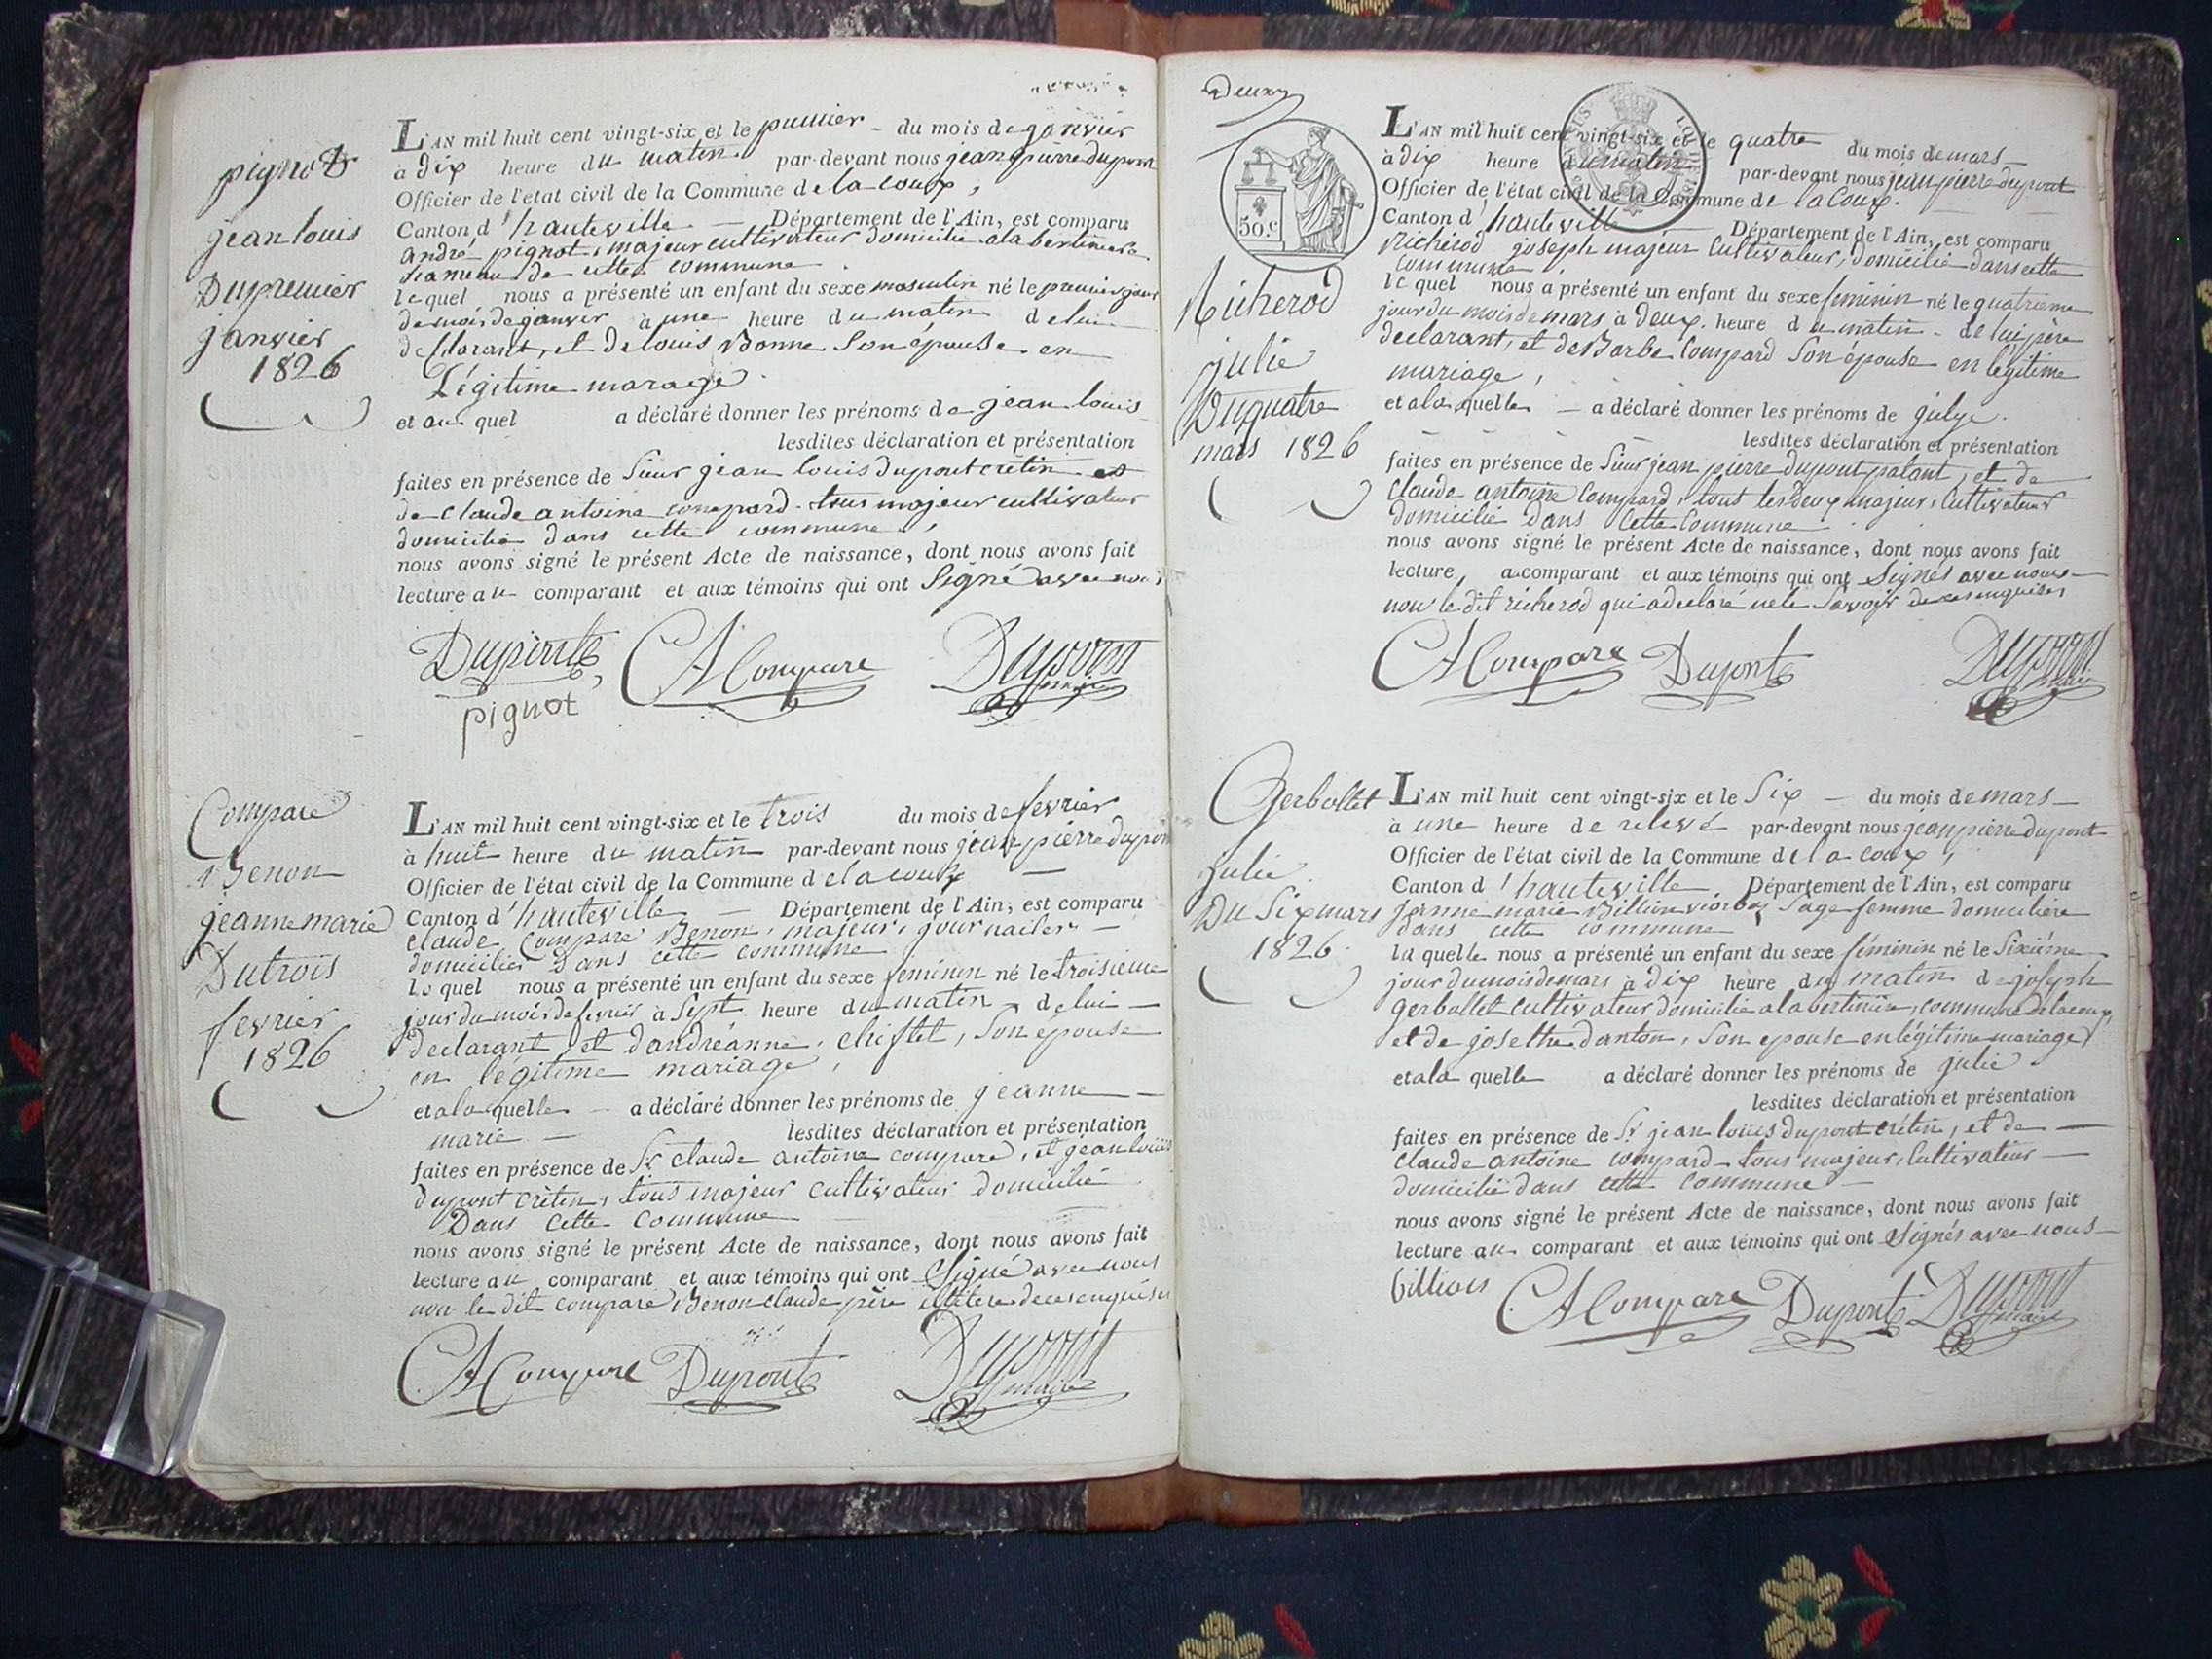 pignot
jean louis
Du premier
janvier
1826
L'AN mil huit cent vingt-six et le premier du mois de janvier
à dix heure du matin par-devant nous jean pierre dupont
Officier de l'état civil de la Commune de lacoux,
Canton d'hauteville — Département de l'Ain, est comparu
andré pignot, majeur cultivateur domicilié a la bertiniere
hameau de cette commune
lequel nous a présenté un enfant du sexe masculin né le premier jour
du mois de janvier à une heure du matin de lui
déclarant, et de louis Bonne Son épouse en
Légitime marage
et au quel a déclaré donner les prénoms de jean louis
lesdites déclaration et présentation
faites en présence de Sieur jean louis dupont crétin et
de claude antoine compard tous majeur cultivateur
domicilié dans cette commune,
nous avons signé le présent Acte de naissance, dont nous avons fait
lecture au comparant et aux témoins qui ont Signé avec nous
Dupont CA Compare Dupont
pignot
Compare
Benon
jeanne marie
Du trois
fevrier
1826
L'AN mil huit cent vingt-six et le trois du mois de fevrier
à huit heure du matin par-devant nous jean pierre dupont
Officier de l'état civil de la Commune de lacoux —
Canton d'hauteville — Département de l'Ain, est comparu
claude Compare Benon, majeur, journailer —
domicilier Dans cette commune
lequel nous a présenté un enfant du sexe feminin né le troisieme
jour du mois de fevrier à Sept heure du matin de lui —
declarant, et d'andréanne Chiflet, Son epouse
en legitime mariage,
et a la quelle — a déclaré donner les prénoms de jeanne —
marie — lesdites déclaration et présentation
faites en présence de Sr claude antoine compare, et jean louis
dupont crétin, tous majeur cultivateur domicilié
Dans cette commune
nous avons signé le présent Acte de naissance, dont nous avons fait
lecture au comparant et aux témoins qui ont Signé avec nous
non le dit compare Benon claude père illitere de ce enquis
CA Compare Dupont Dupont maire
Deux
50 c
Richerod
julie
Du quatre
mars 1826
L'AN mil huit cent vingt-six et le quatre du mois de mars —
à dix heure du matin par-devant nous jean pierre dupont
Officier de l'état civil de la Commune de la Coux.
Canton d'hauteville — Département de l'Ain, est comparu
Richerod joseph majeur Cultivateur, domicilié dans cette
commune
lequel nous a présenté un enfant du sexe feminin né le quatrieme
jour du mois de mars à Deux heure du matin de lui père
declarant, et de Barbe Compard Son épouse en légitime
mariage,
et a la quelle — a déclaré donner les prénoms de julye.
lesdites déclaration et présentation
faites en présence de Sieur jean pierre dupont patant, et de
claude antoine Compard, tout les deux majeur, Cultivateur
domicilié dans cette Commune
nous avons signé le présent Acte de naissance, dont nous avons fait
lecture a comparant et aux témoins qui ont Signés avec nous —
non le dit richerod qui a declaré ne le Savoir de ce enquis
CA Compare Dupont Dupont maire
Gerbollet
julie
Du Six mars
1826
L'AN mil huit cent vingt-six et le Six — du mois de mars —
à une heure de relevé par-devant nous jean pierre dupont
Officier de l'état civil de la Commune de la coux,
Canton d'hauteville. Département de l'Ain, est comparu
Jeanne marie Billion Sage femme domicilière
dans cette commune
la quelle nous a présenté un enfant du sexe féminin né le Sixième
jour du mois de mars à dix heure du matin de joseph
Gerbollet cultivateur domicilié a la bertiniere, commune de lacoux,
et de josethe danton, Son epouse en légitime mariage
et a la quelle a déclaré donner les prénoms de julie
lesdites déclaration et présentation
faites en présence de Sr jean louis dupont crétin, et de —
claude antoine compard tous majeur, Cultivateur —
domicilié dans cette commune —
nous avons signé le présent Acte de naissance, dont nous avons fait
lecture au comparant et aux témoins qui ont Signés avec nous —
billion CA Compare Dupont Dupont maire